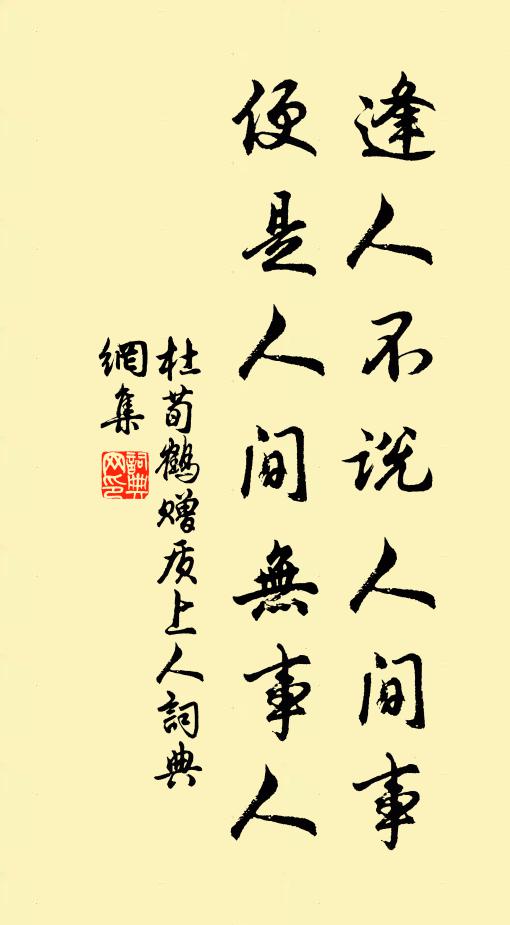 逢人不说人间事
便是人间無事人
杜荀鶴赠质上人詞典
網集
詞典
网印